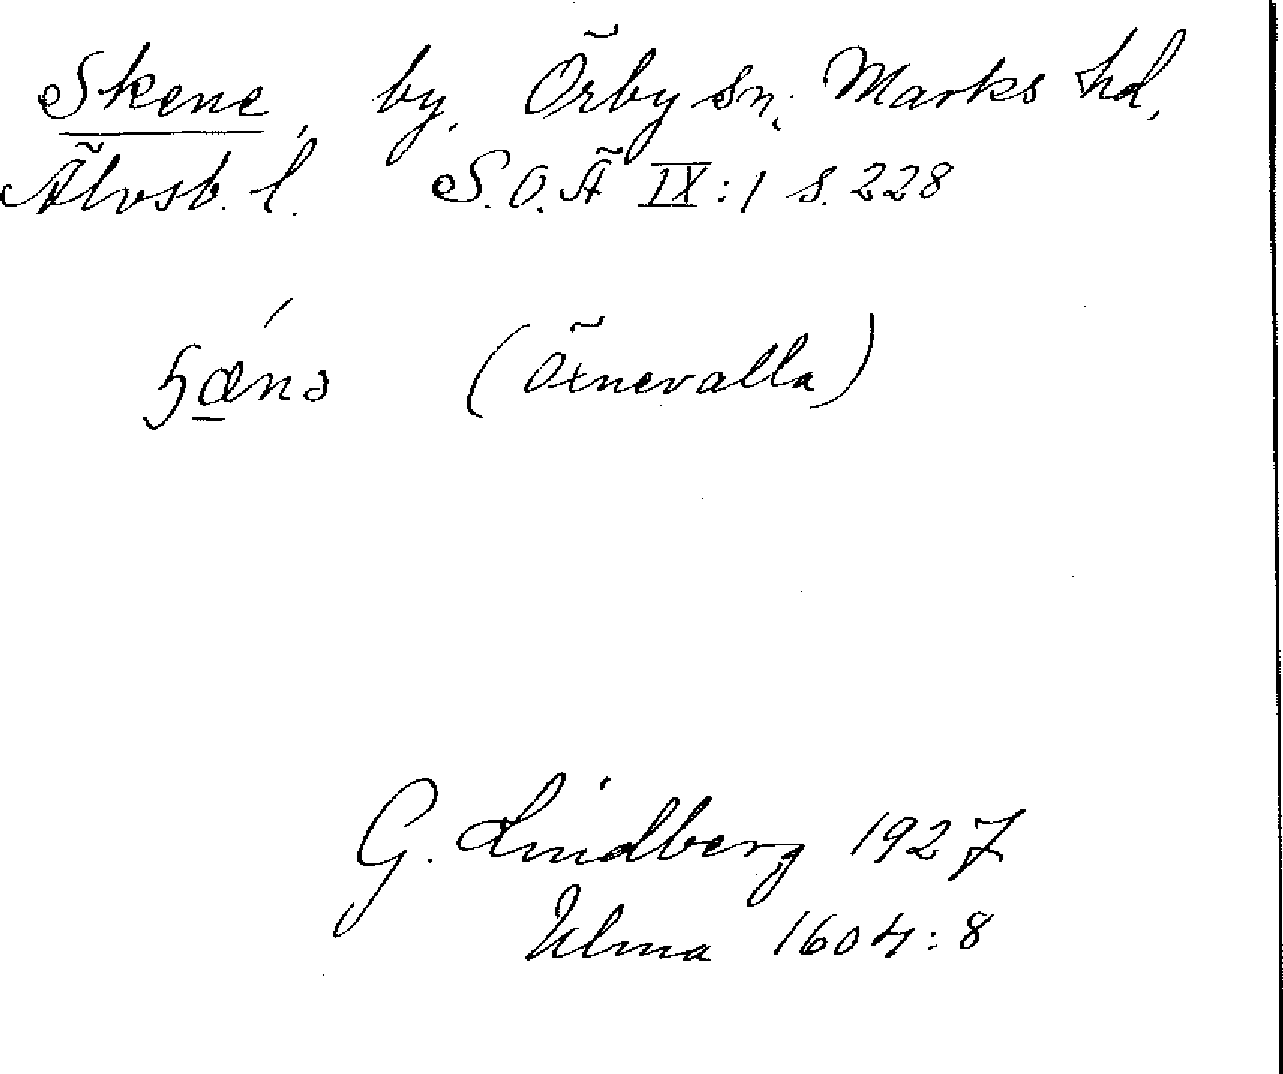 Skene, by, Örby sn. Marks hd,
Älvsb. l. S.O.Ä IX:1 s. 228
(Öxnevalla)
G. Lindberg 1927
Ulma 1604:8